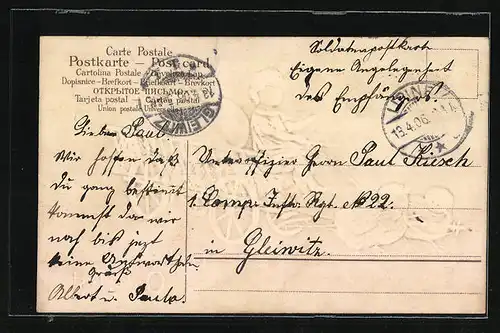 Carte Postale
Postkarte – Post card
Cartolina Postale – Levelező-Lap
Dopisnice – Brefkort – Briefkaart – Brevkort
ОТКРЫТОЕ ПИСЬМО
Tarjeta postal – Cartão postal
Union postale universelle
GLEIWITZ
13.4.06.
Soldatenpostkarte
Eigene Angelegenheit
des Empfängers
Lieber Paul
Wir hoffen daß
Du ganz bestimmt
kommst da wir
noch bis jezt
keine Antwort haben
Gruß
Albert u. Paula.
Unteroffizier Herrn Paul
1 Comp. Inftr. Rgt. No 22.
in Gleiwitz.